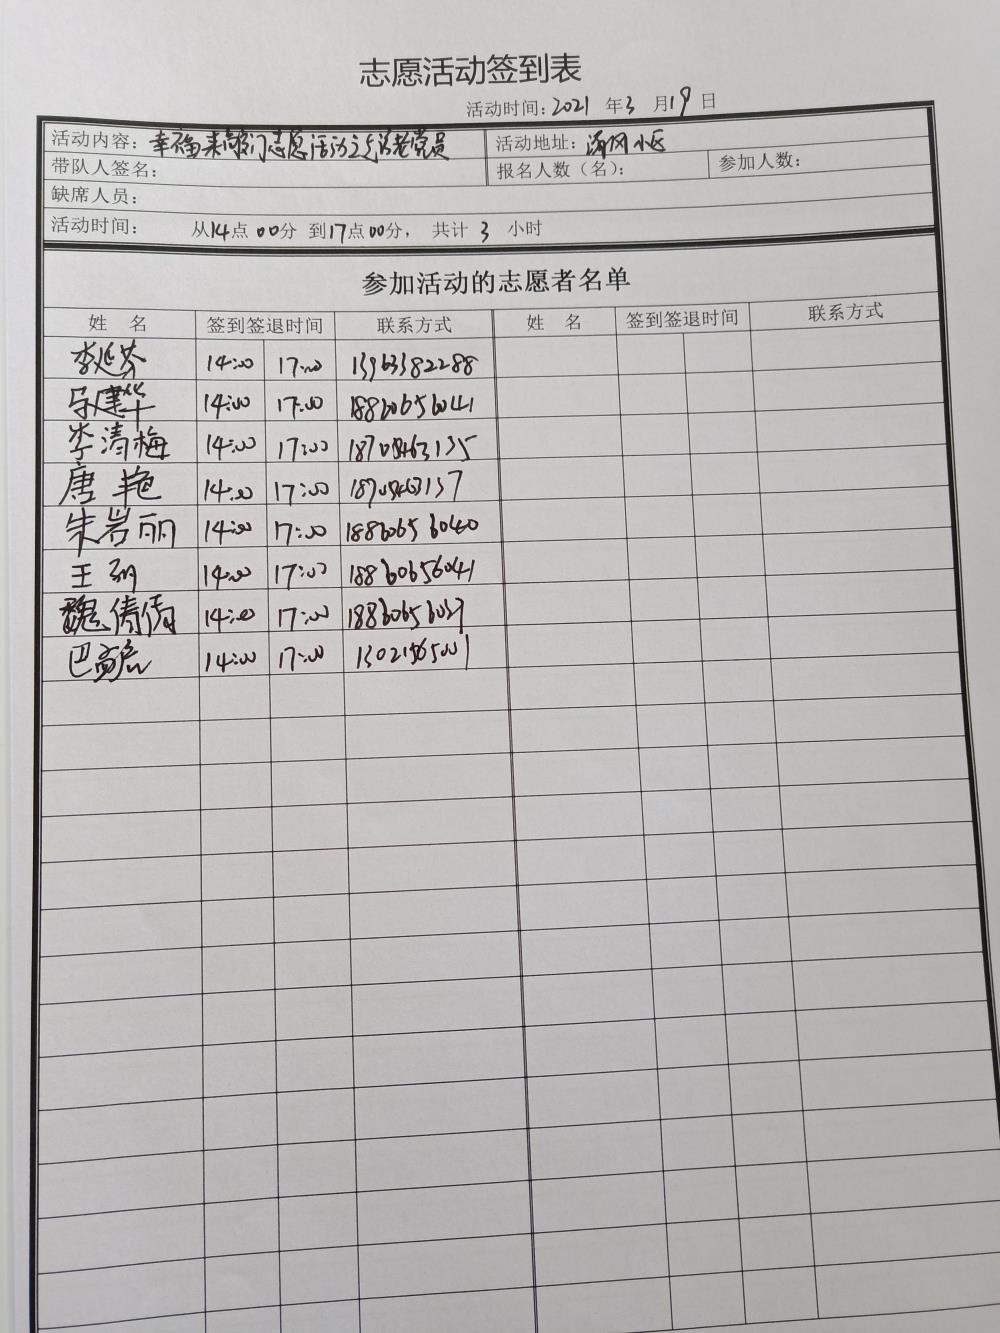 志愿活动签到表
活动时间：2021 年 3 月 19 日
活动内容：幸福来敲门志愿活动之走访老党员 活动地址：清风小区
带队人签名： 报名人数（名）： 参加人数：
缺席人员：
活动时间： 从14点00分 到17点00分， 共计 3 小时
参加活动的志愿者名单
姓 名 签到签退时间 联系方式 姓 名 签到签退时间 联系方式
李延芬 14:00 17:00 13963382288
马建华 14:00 17:00 18860656041
李清梅 14:00 17:00
唐艳 14:00 17:00
朱岩丽 14:00 17:00 18860656040
王 14:00 17:00 18860656041
魏倩倩 14:00 17:00
巴 14:00 17:00